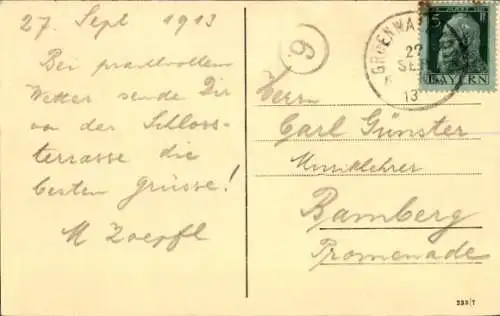 27. Sept 1913
Bei prachtvollem
Wetter sende Dir
von der Schloss-
terrasse die
besten Grüsse!
M Zoepfl
6
5
BAYERN
27
SEP
13
Herrn
Carl Günster
Musiklehrer
Bamberg
Promenade